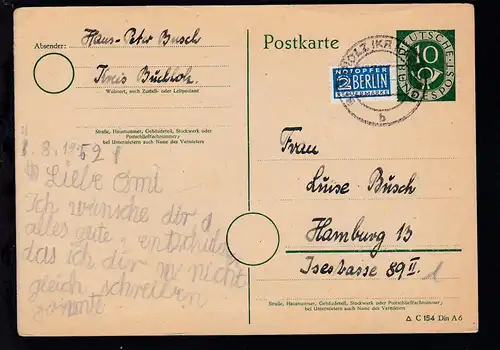 Absender:
Hans-Peter Busch
Kreis Buchholz.
Wohnort, auch Zustell- oder Leitpostamt
Straße, Hausnummer, Gebäudeteil, Stockwerk oder
Postschließfachnummer;
bei Untermietern auch Name des Vermieters
8.1952
Liebe Omi
Ich wünsche dir
alles gute, entschuldige
das ich dir nicht
gleich schreiben
konnte
Postkarte
NOTOPFER
2 BERLIN
STEUERMARKE
DEUTSCHE
10
BUNDESPOST
HOLZ (KR
b
Frau
Luise Busch
Hamburg 13
Isestrasse 89 II.
1
Straße, Hausnummer, Gebäudeteil, Stockwerk oder Postschließfachnummer;
bei Untermietern auch Name des Vermieters
△ C 154 Din A 6